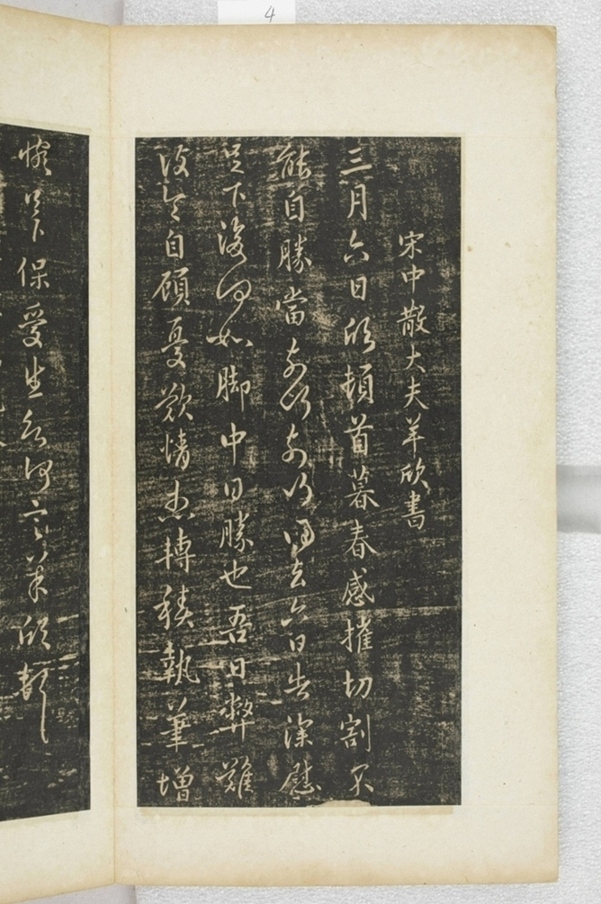 4
宋中散大夫羊欣書
三月六日欣頓首暮春感摧切割不
能自勝當奈何奈何得去六日告深慰
足下復何如腳中日勝也吾日弊難
復令自顧憂歎情想轉積執筆增
惋足下保愛生
欣頓